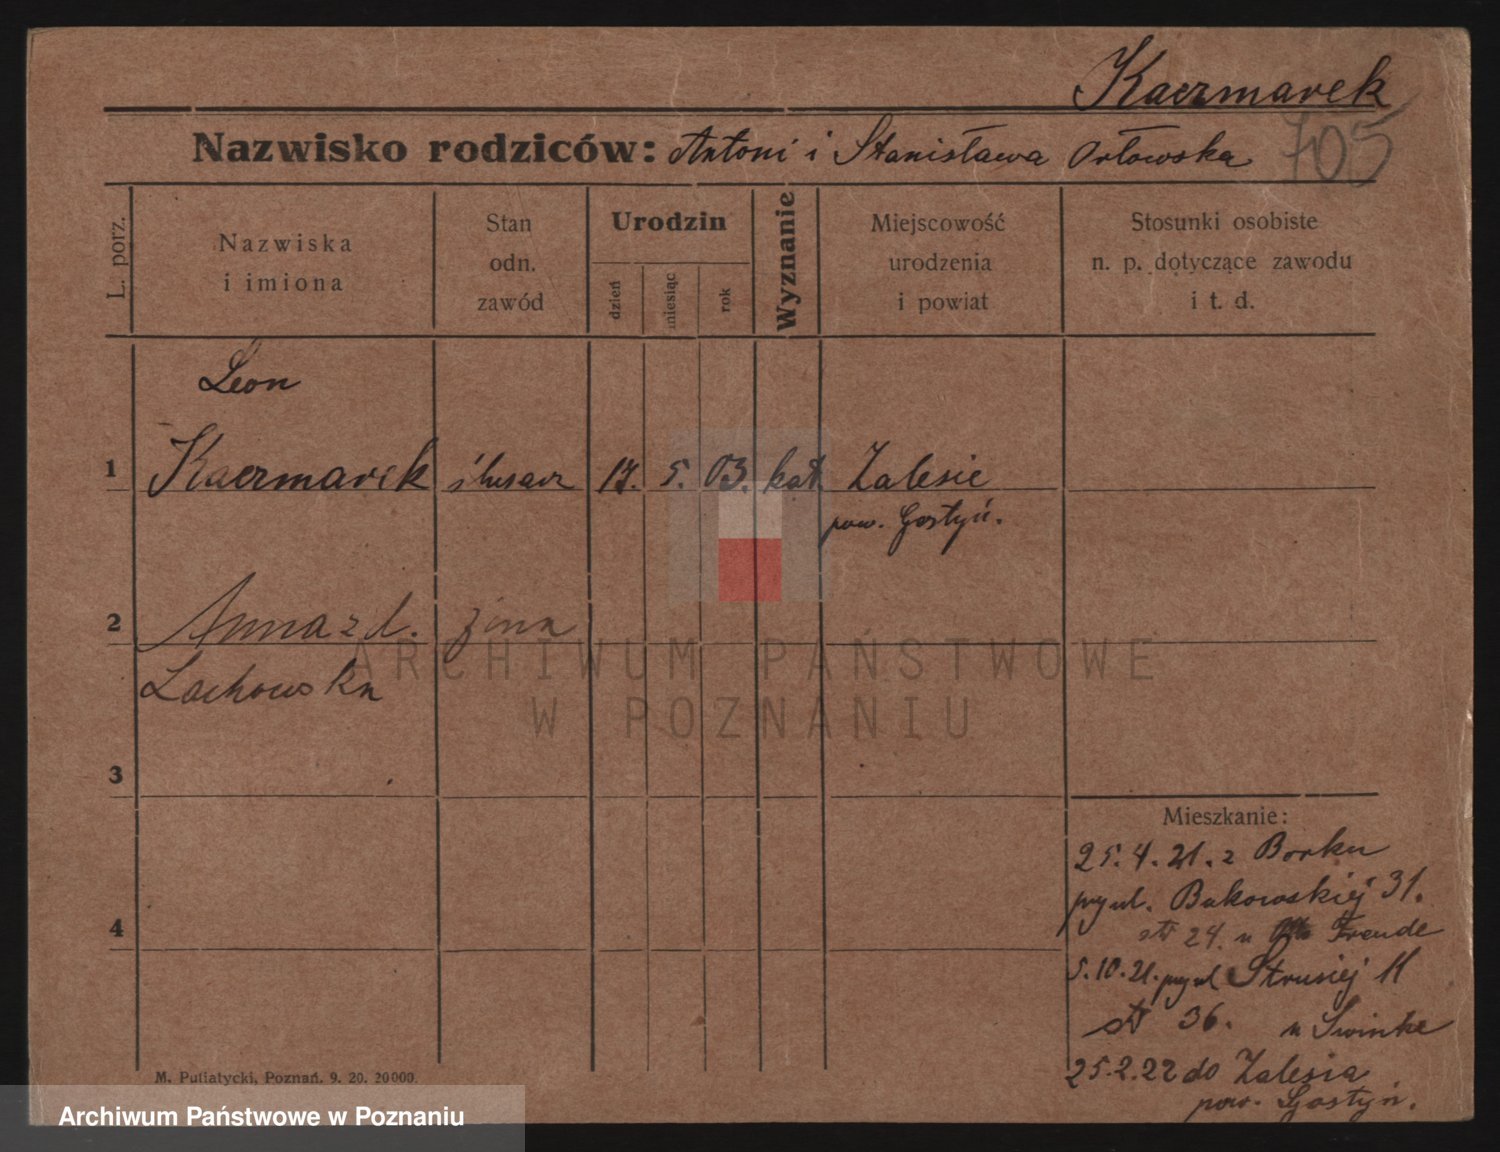 Kaczmarek
705
Nazwisko rodziców: Antoni i Stanisława Orłowska
L. porz.
Nazwiska
i imiona
Stan
odn.
zawód
Urodzin
dzień
miesiąc
rok
Wyznanie
Miejscowość
urodzenia
i powiat
Stosunki osobiste
n. p. dotyczące zawodu
i t. d.
Leon
1 Kaczmarek ślusarz 17. 5. 03. kat. Zalesie
pow. Gostyń.
2 Anna z d. żona
Lachowska
3
4
Mieszkanie:
25.4.21. z Borku
przy ul. Bukowskiej 31.
str 24. u Freude
5.10.21. przy ul Strusiej 11
str 36. u Swinke
25.2.22 do Zalesia
pow. Gostyń.
M. Putiatycki, Poznań. 9. 20. 20000.
ARCHIWUM PAŃSTWOWE
W POZNANIU
Archiwum Państwowe w Poznaniu